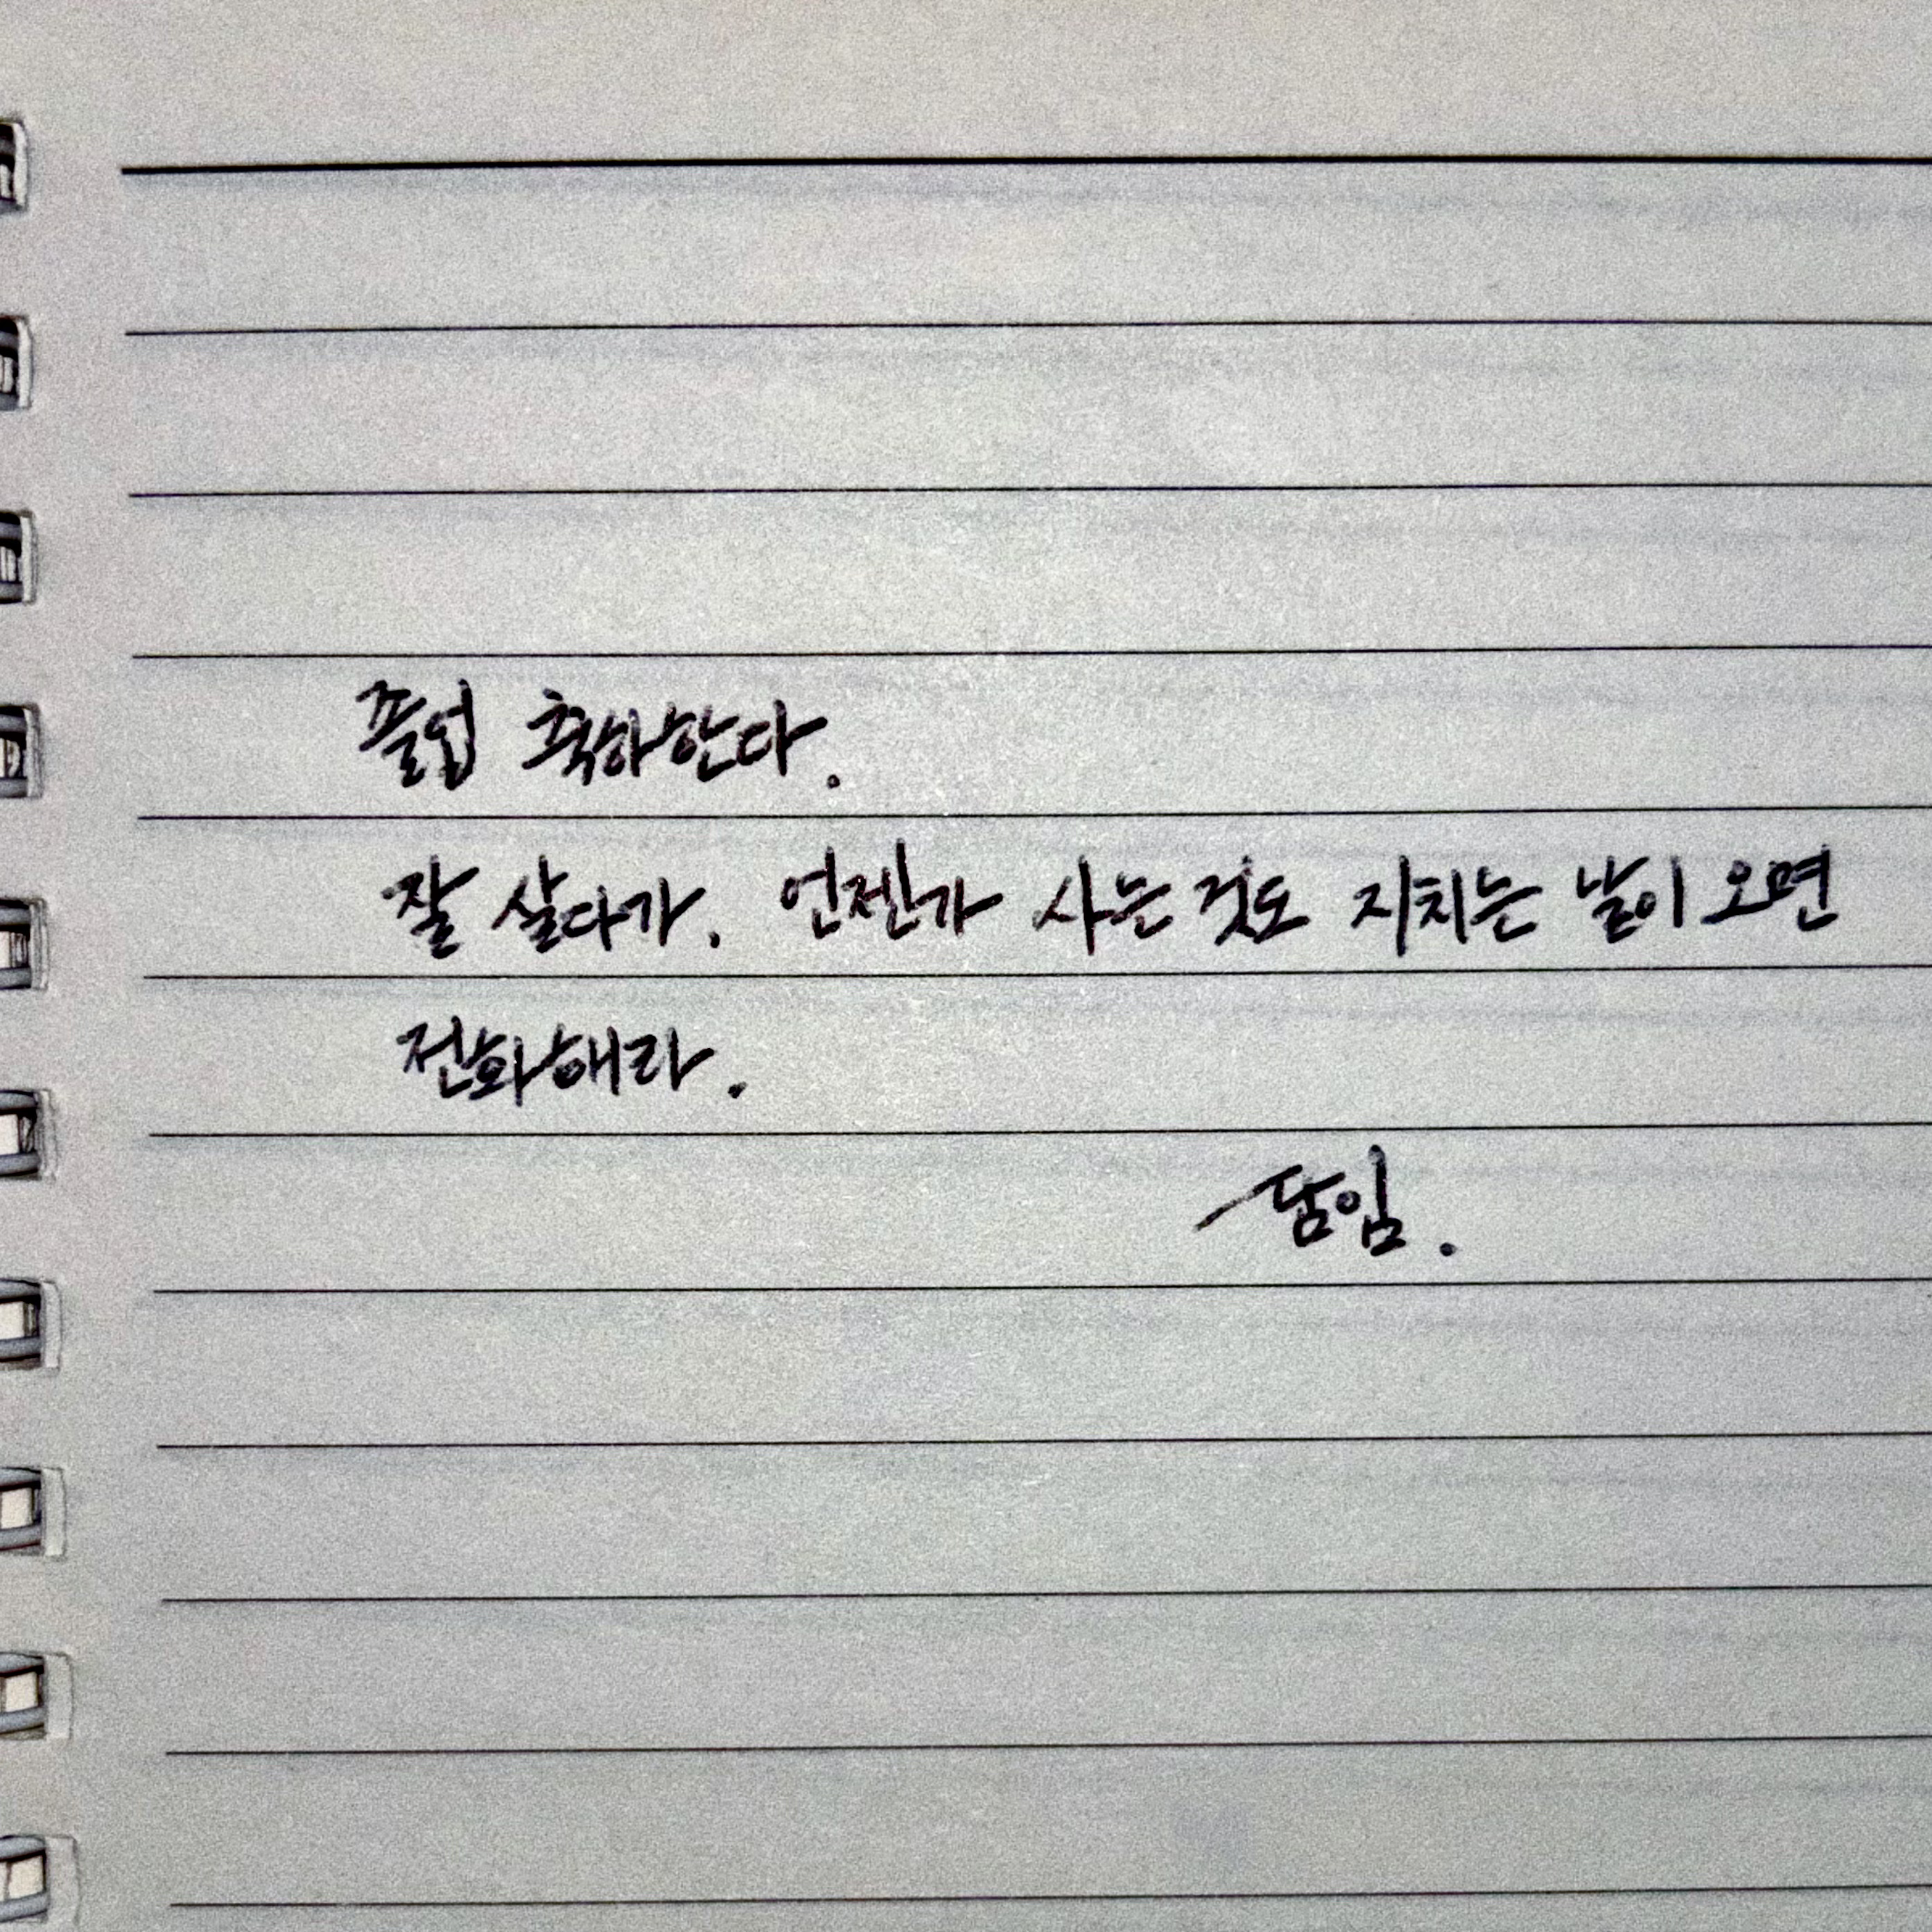 졸업 축하한다.
잘 살다가. 언젠가 사는 것도 지치는 날이 오면
전화해라.
담임.